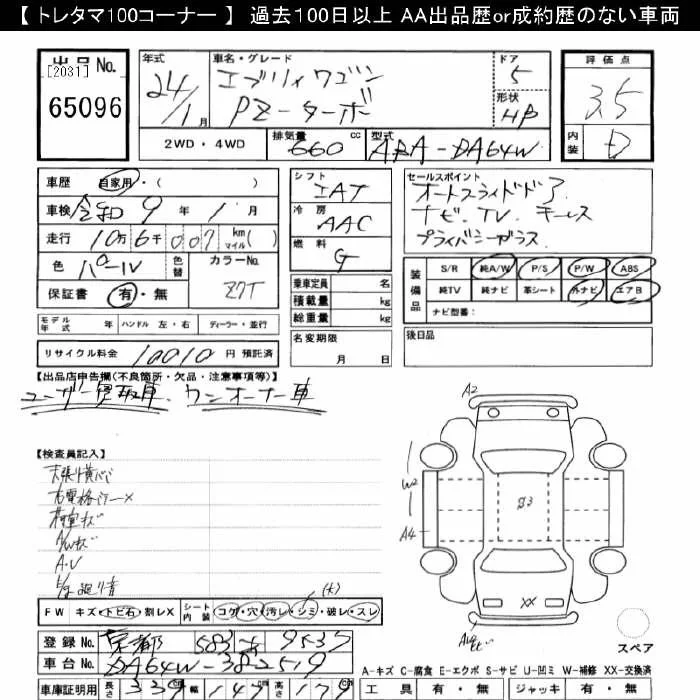 【 トレタマ100コーナー 】 過去100日以上 AA出品歴or成約歴のない車両
出品No.
[2031]
65096
年式
24/1月
車名・グレード
エブリィワゴン
PZ-ターボ
ドア
5
形状
HB
評価点
3.5
内装
D
2WD・4WD
排気量 660 cc
型式 ABA-DA64W
車歴 自家用・( )
車検 令和 9 年 1 月
走行 10万 6千 007 km マイル ( )
色 パール 色替 カラーNo. Z7T
保証書 有・無
シフト
IAT
冷房
AAC
燃料
G
乗車定員 名
積載量 kg
総重量 kg
名変期限
月 日
セールスポイント
オートスライドドア
ナビ.TV. キーレス
プライバシーガラス.
装備品
S/R 純A/W P/S P/W ABS
純TV 純ナビ 革シート 外ナビ エアB
ナビ型番:
後日品
モデル年式 年 ハンドル 左・右 ディーラー・並行
リサイクル料金 10010 円 預託済
【出品店申告欄(不良箇所・欠品・注意事項等)】
ユーザー買取車. ワンオーナー車
【検査員記入】
A/Wキズ
A.V
A2
W2
A4
S3
XX
FW キズ・トビ石・割レX シート内装 コゲ・穴・汚レ・シミ・破レ・スレ
(大)
登録No. 京都 583 9537
車台No. DA64W-382519
車庫証明用 長さ 339 cm 幅 147 cm 高さ 179 cm
スペア
A-キズ C-腐食 E-エクボ S-サビ U-凹ミ W-補修 XX-交換済
工具 有・無 ジャッキ 有・無